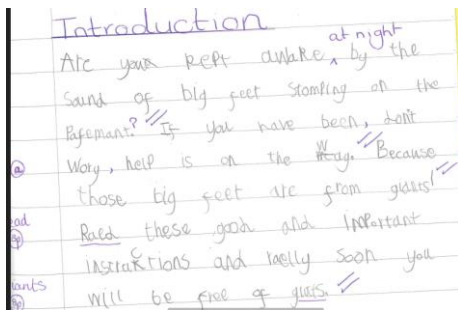 Introduction
at night
Are your kept awake ^ by the
Sound of big feet stomping on the
Pafemant? If you have been, don't
Wory, help is on the Way. Because
those big feet are from giants!
Raed these good and important
instructions and raelly soon you
will be free of giants.
ead
sp
iants
sp